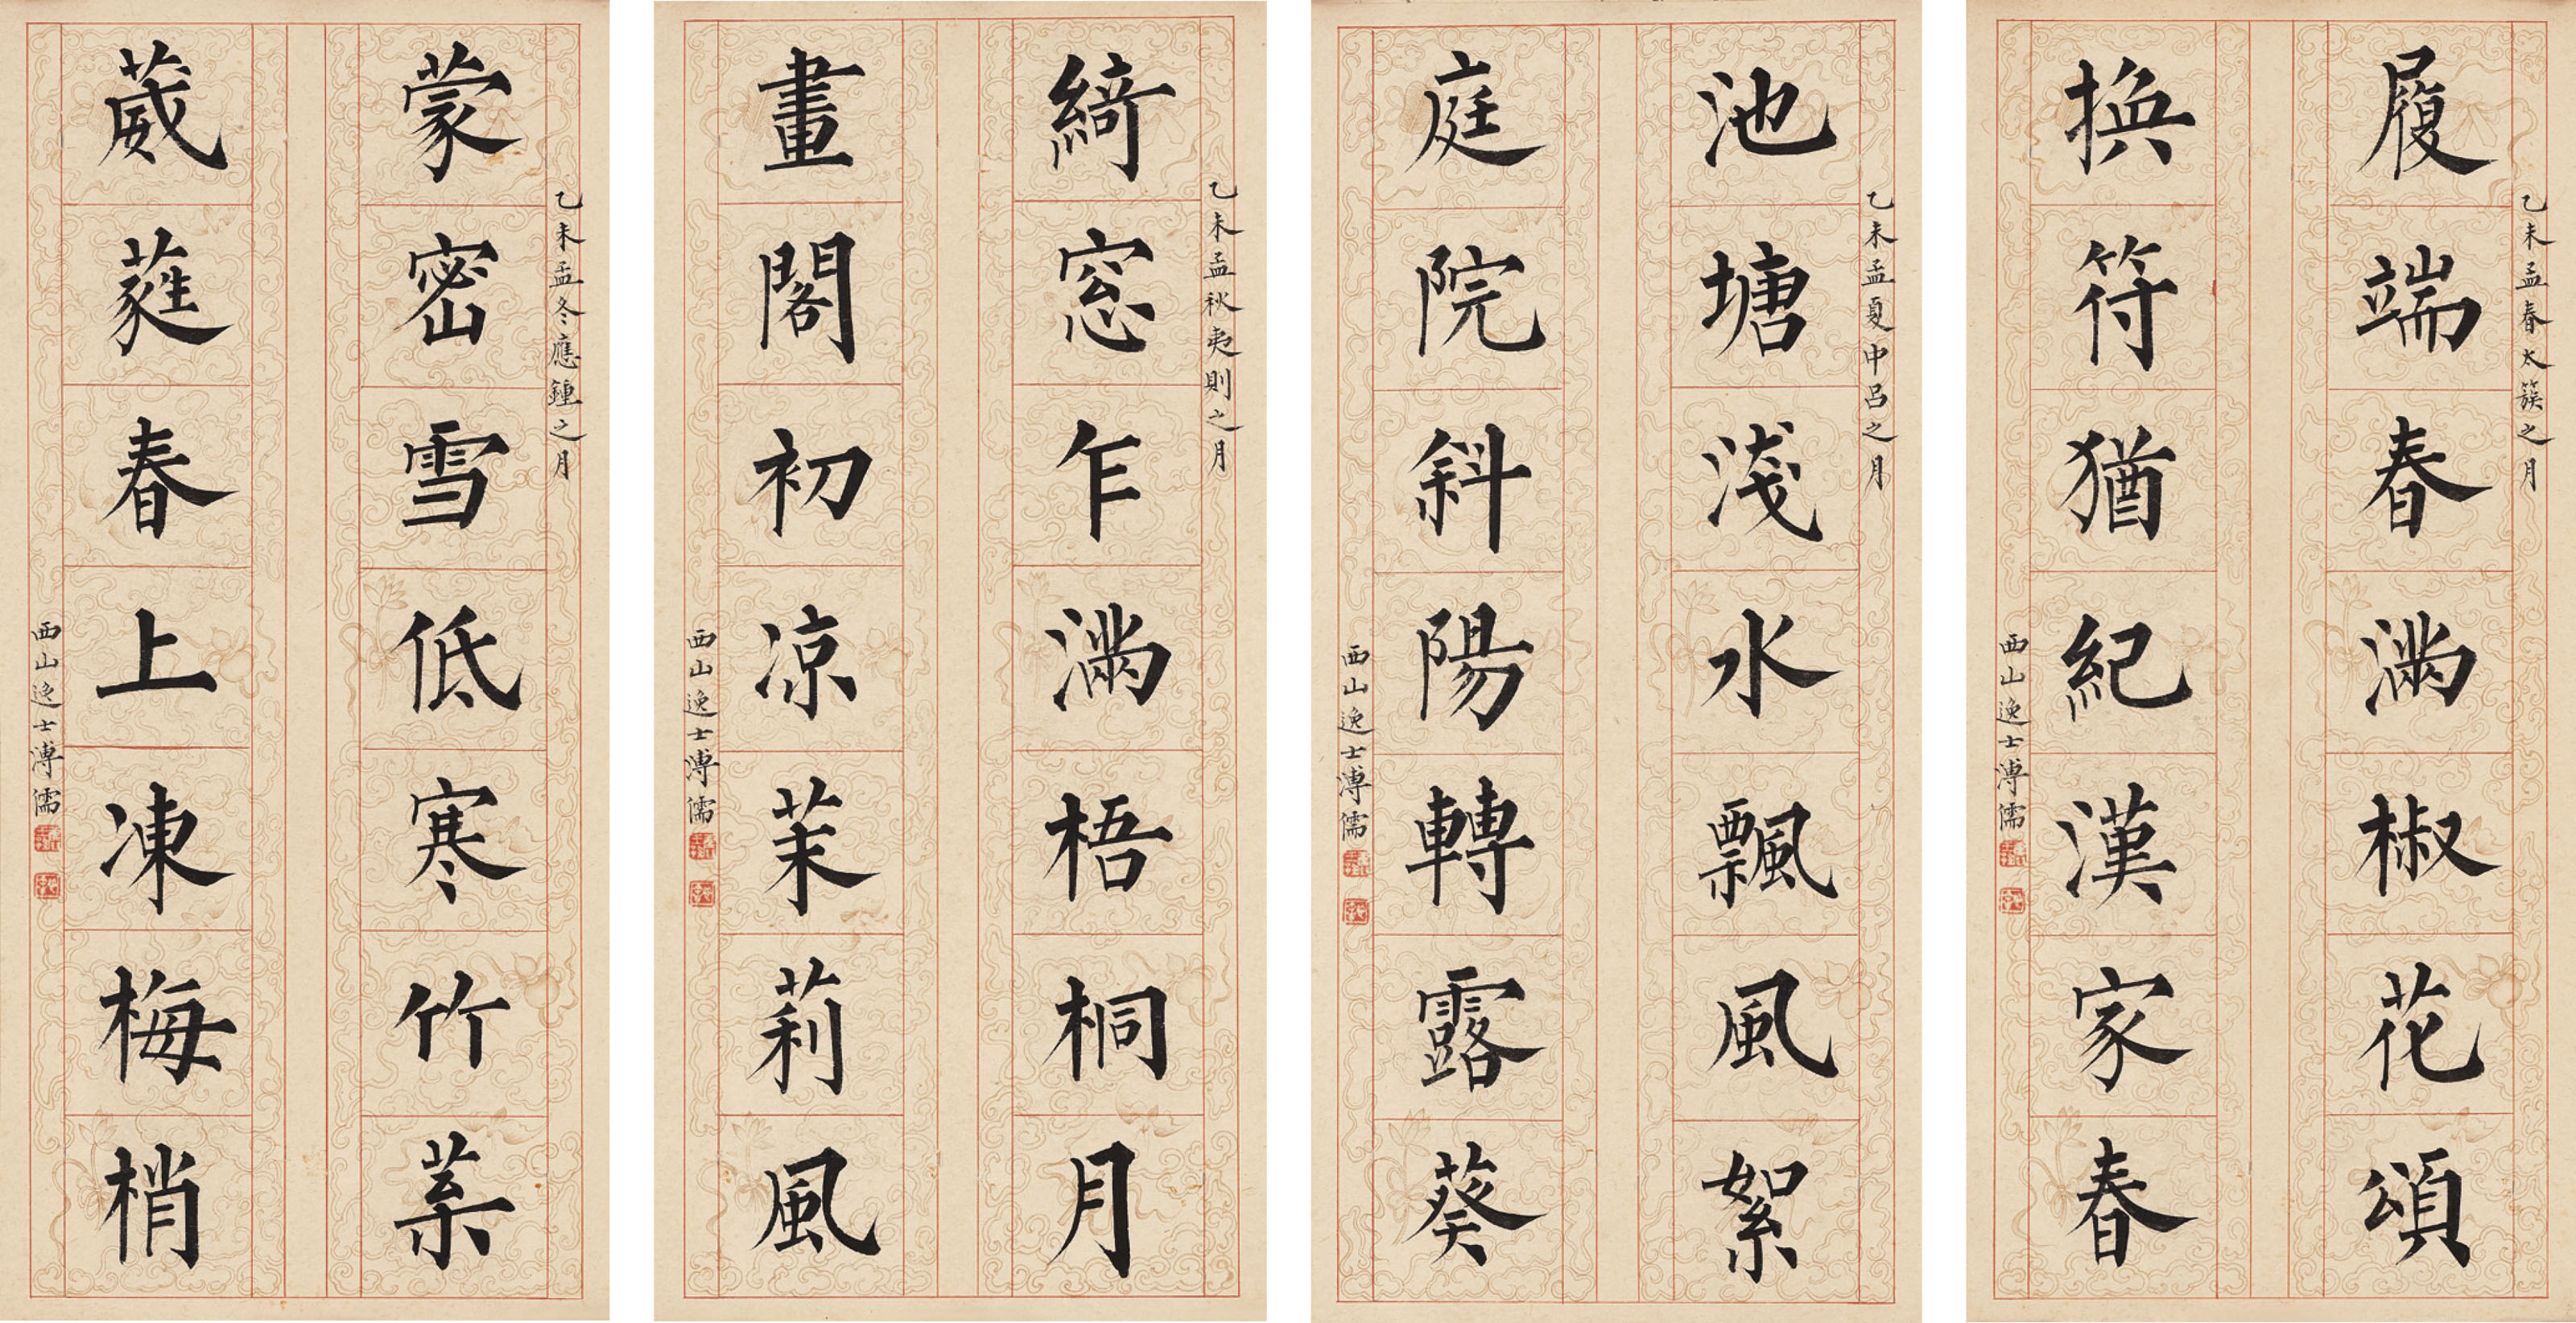 乙未孟春太簇之月
履端春滿椒花頌
換符猶紀漢家春
西山逸士溥儒
乙未孟夏中呂之月
池塘淺水飄風絮
庭院斜陽轉露葵
西山逸士溥儒
乙未孟秋夷則之月
綺窓乍滿梧桐月
畫閣初凉茉莉風
西山逸士溥儒
乙未孟冬應鍾之月
蒙密雪低寒竹葉
葳蕤春上凍梅梢
西山逸士溥儒